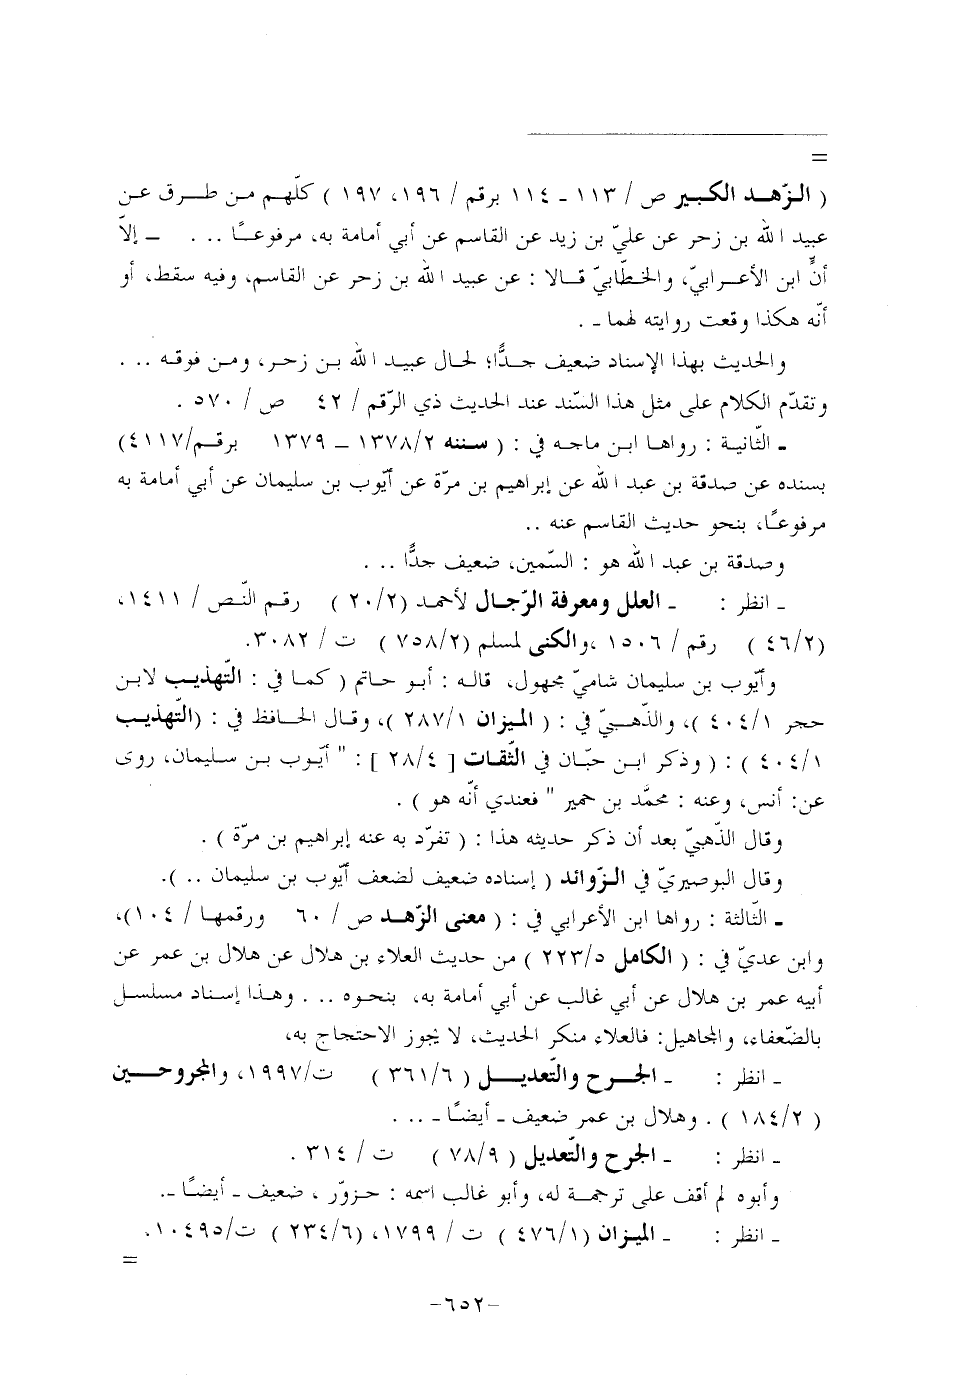 =
( الزّهـد الكبير ص / ١١٣ ـ ١١٤ برقم / ١٩٦، ١٩٧ ) كلّهم من طرق عن
عبيد الله بن زحر عن عليّ بن زيد عن القاسم عن أبي أمامة به، مرفوعًـا .. . ــ إلاّ
أنّ ابن الأعـرابيّ، والخطّابيّ قـالا : عن عبيد الله بن زحر عن القاسم، وفيه سقط، أو
أنّه هكذا وقعت روايته لهما ـ .
والحديث بهذا الإسناد ضعيف جـدًّا؛ لحال عبيـد الله بـن زحـر، ومـن فوقـه .. .
وتقدّم الكلام على مثل هذا السّند عند الحديث ذي الرّقم / ٤٢ ص / ٥٧٠ .
ـ الثّانيـة : رواهـا ابـن ماجـه في : ( سننه ١٣٧٨/٢ ــ ١٣٧٩ برقـم/٤١١٧)
بسنده عن صدقة بن عبد الله عن إبراهيم بن مرّة عن أيّوب بن سليمان عن أبي أمامة به
مرفوعًـا، بنحو حديث القاسم عنه ..
وصدقة بن عبد الله هو : السّمين، ضعيف جدًّا .. .
ـ انظر : ـ العلل ومعرفة الرّجال لأحمد (٢٠/٢ ) رقـم النّـص / ١٤١١،
(٤٦/٢ ) رقم / ١٥٠٦ ،والكنى لمسلم (٧٥٨/٢ ) ت / ٣٠٨٢.
وأيّوب بن سليمان شاميّ مجهول، قاله : أبـو حاتم ( كمـا في : التّهذيب لابـن
حجر ٤٠٤/١ )، والذّهـبيّ في : ( الميزان ٢٨٧/١ )، وقـال الحـافظ في : (التّهذيب
٤٠٤/١ ) : ( وذكر ابـن حبّـان في الثّقات [ ٢٨/٤ ] : " أيّـوب بـن سـليمان، روى
عن: أنس، وعنه : محمّد بن حمير " فعندي أنّه هو ) .
وقال الذّهبيّ بعد أن ذكر حديثه هذا : ( تفرّد به عنه إبراهيم بن مرّة ) .
وقال البوصيريّ في الـزّوائد ( إسناده ضعيف لضعف أيّوب بن سليمان .. ).
ـ الثّالثة : رواها ابن الأعرابي في : ( معنى الزّهـد ص / ٦٠ ورقمهـا / ١٠٤)،
وابن عديّ في : ( الكامل ٢٢٣/٥ ) من حديث العلاء بن هلال عن هلال بن عمر عن
أبيه عمر بن هلال عن أبي غالب عن أبي أمامة به، بنحـوه .. . وهـذا إسـناد مسلسـل
بالضّعفاء، والمجاهيل: فالعلاء منكر الحديث، لا يجوز الاحتجاج به،
ـ انظر : ـ الجـرح والتّعديـــل ( ٣٦١/٦ ) ت/١٩٩٧، والمجروحــين
( ١٨٤/٢ ) . وهلال بن عمر ضعيف ـ أيضًـا ـ .. .
ـ انظر : ـ الجرح والتّعديل ( ٧٨/٩ ) ت / ٣١٤ .
وأبوه لم أقف على ترجمـة له، وأبو غالب اسمه : حزوّر ، ضعيف ـ أيضًـا ـ.
ـ انظر : ـ الميـزان (٤٧٦/١ ) ت / ١٧٩٩، (٢٣٤/٦ ) ت/١٠٤٩٥.
=
-٦٥٢-